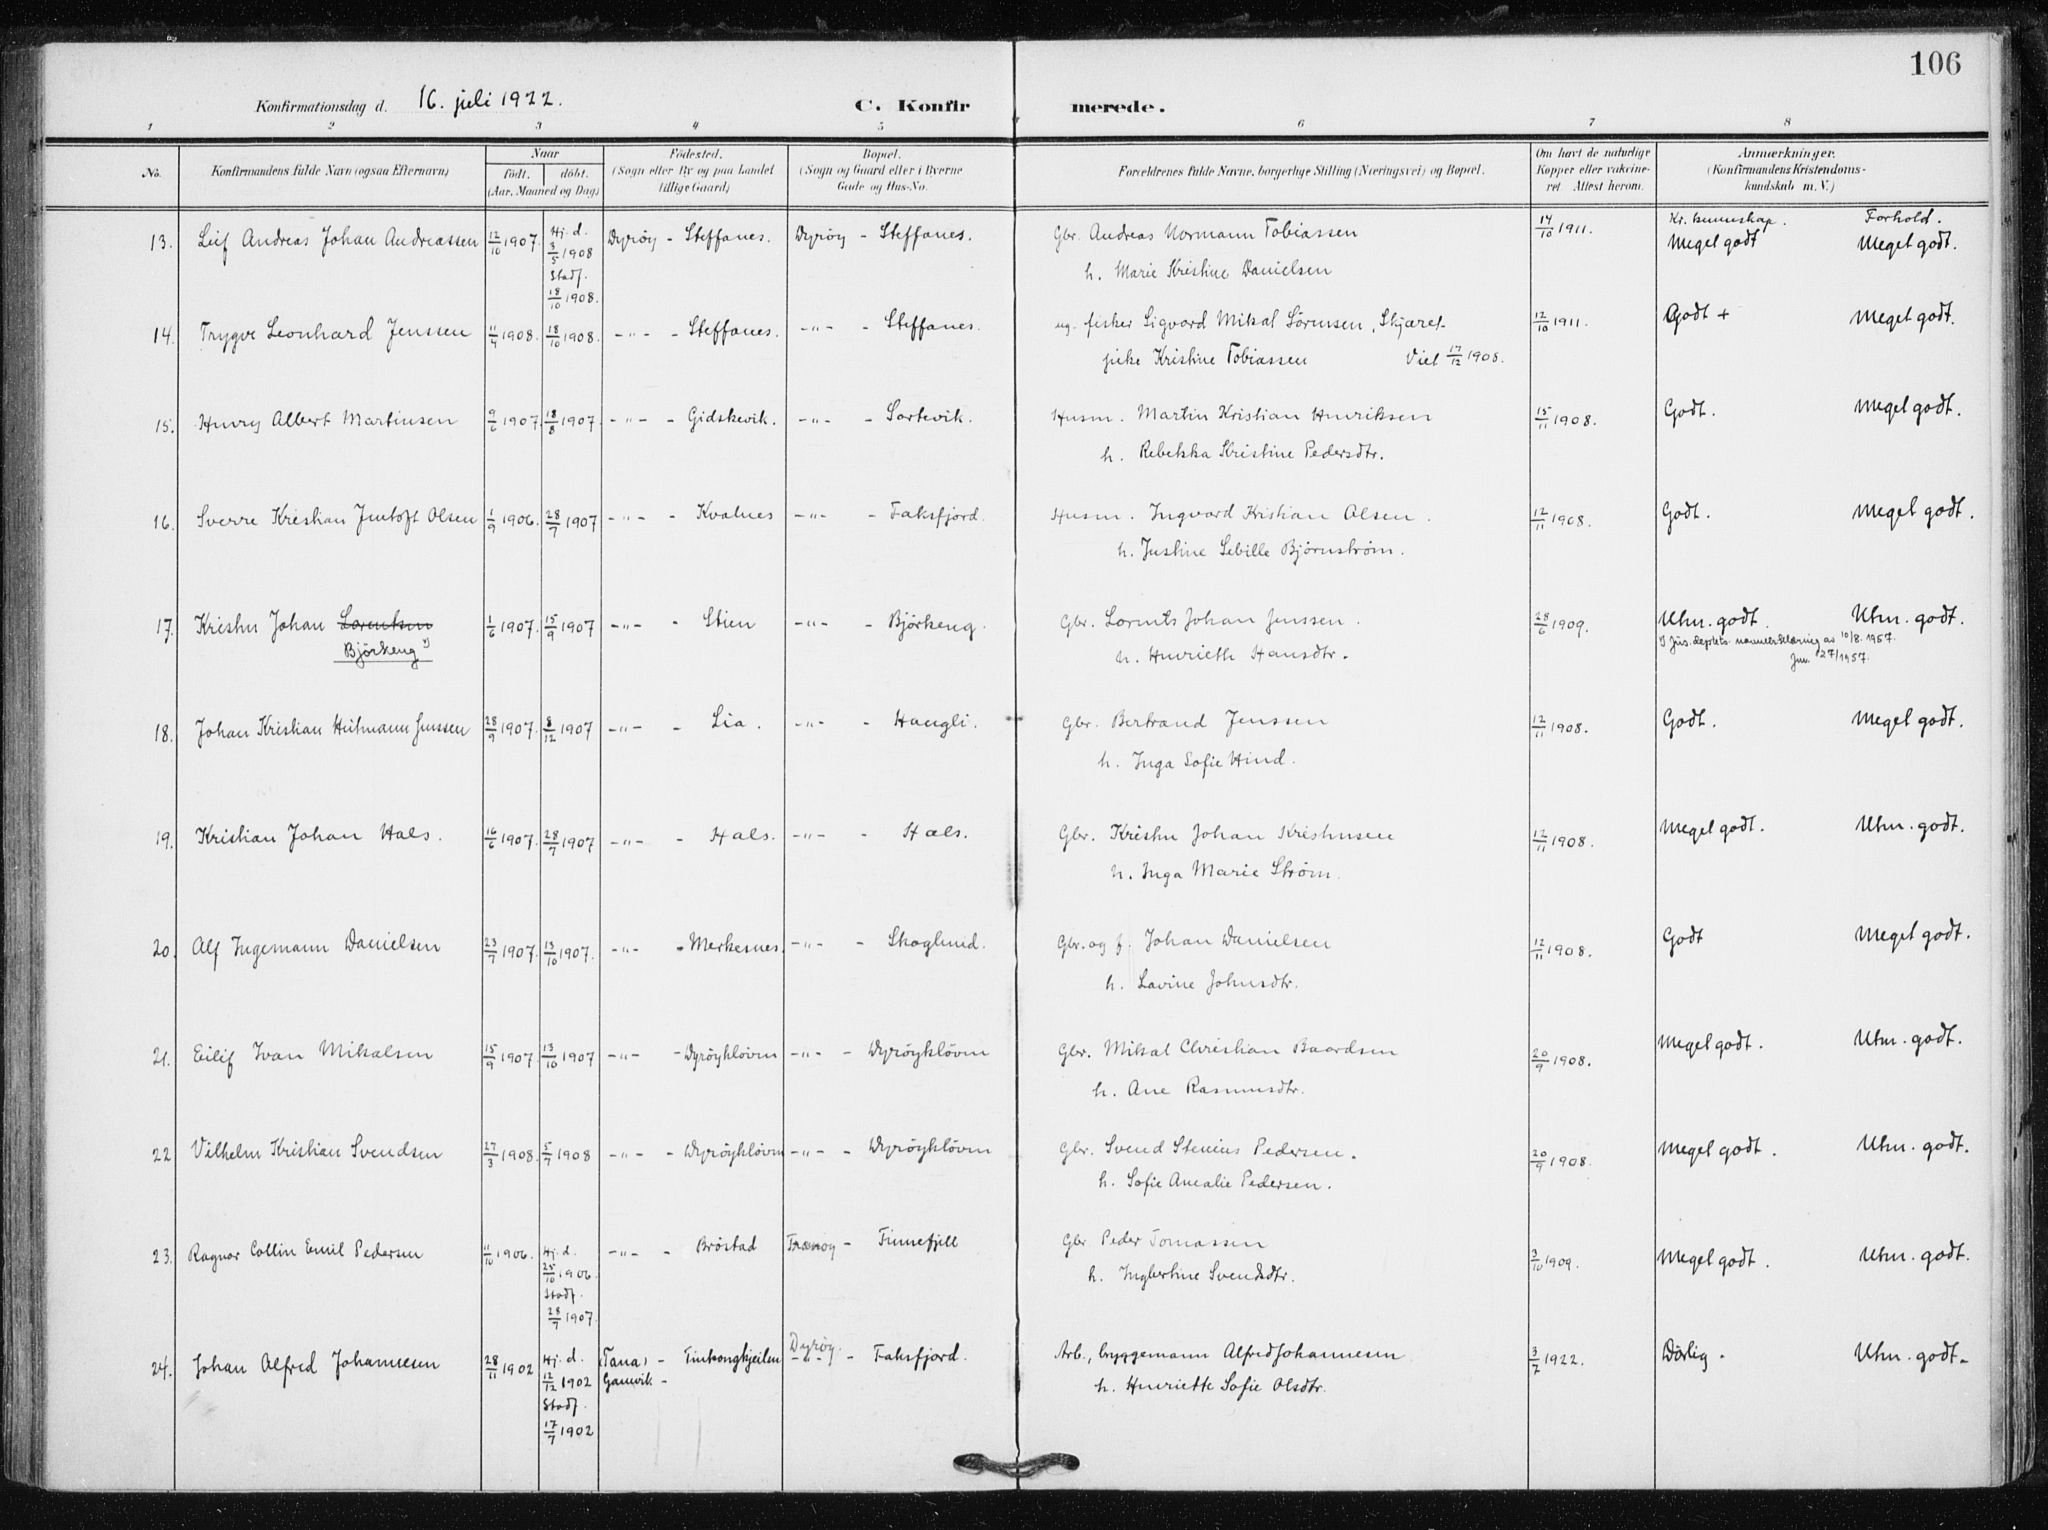 106
Konfirmationsdag d. 16. juli 1922. C. Konfirmerede.
1 2 3 4 5 6 7 8
No. Konfirmandens fulde Navn (ogsaa Efternavn) Naar født. døbt. (Aar, Maaned og Dag) Fødested. (Sogn eller By og paa Landet tillige Gaard) Bopæl. (Sogn og Gaard eller i Byerne Gade og Hus-No. Forældrenes fulde Navne, borgerlige Stilling (Næringsvei) og Bopæl. Om havt de naturlige Kopper eller vakcineret. Attest herom. Anmærkninger. (Konfirmandens Kristendomskundskab m. V.)
Kr. kunnskap. Forhold.
13. Leif Andreas Johan Andreassen 12/10 1907. Hj. d. 3/5 1908 Stadf. 18/10 1908. Dyrøy - Steffanes. Dyrøy - Steffanes. Gbr. Andreas Normann Tobiassen 14/10 1911. Meget godt Meget godt.
h. Marie Kristine Danielsen
14. Trygve Leonhard Jenssen 11/9 1908. 18/10 1908. -"- - Steffanes. -"- - Steffanes. ug. fisker Sigvard Mikal Sörensen, Skjæret 12/10 1911. Godt + Meget godt.
pike Kristine Tobiassen Viet 17/12 1908.
15. Henry Albert Martinsen 9/6 1907. 18/8 1907. -"- - Gidskevik. -"- - Sortevik. Husm. Martin Kristian Henriksen 15/11 1908. Godt. Meget godt.
h. Rebekka Kristine Pedersdtr.
16. Sverre Kristian Jentoft Olsen 1/9 1906. 28/7 1907 -"- - Kvalnes -"- - Faksfjord. Husm. Ingvard Kristian Olsen. 12/11 1908. Godt. Meget godt.
h. Justine Sebille Bjørnstrøm.
17. Kristen Johan Lorentsen 1/6 1907. 15/9 1907 -"- - Stien -"- - Björkeng. Gbr. Lorents Johan Jenssen. 28/6 1909. Utm. godt. Utm. godt.
Björkeng 1)
h. Henriette Hansdtr.
1) Jus. deptets navneerklæring av 10/8. 1957.
18. Johan Kristian Heitmann Jenssen 28/9 1907. 8/12 1907 -"- - Lia. -"- - Haugli. Gbr. Bertrand Jenssen 12/11 1908. Godt. Meget godt.
h. Inga Sofie Hind.
19. Kristian Johan Hals. 16/6 1907. 28/7 1907 -"- - Hals. -"- - Hals. Gbr. Kristen Johan Kristensen 12/11 1908. Meget godt. Utm. godt.
h. Inga Marie Strøm.
20. Alf Ingemann Danielsen 23/7 1907. 13/10 1907. -"- - Merkesnes. -"- - Skoglund. Gbr. og f. Johan Danielsen 12/11 1908. Godt Meget godt.
h. Lavine Johnsdtr.
21. Eilif Ivan Mikalsen 15/9 1907. 13/10 1907 -"- - Dyrøykløven -"- - Dyrøykløven Gbr. Mikal Christian Baardsen 20/9 1908. Meget godt. Utm. godt.
h. Ane Rasmusdtr.
22 Vilhelm Kristian Svendsen 27/3 1908. 5/7 1908 -"- - Dyrøykløven -"- - Dyrøykløven Gbr. Svend Stenius Pedersen. 20/9 1908. Meget godt. Utm. godt.
h. Sofie Amalie Pedersen.
23. Ragnar Collin Emil Pedersen 11/10 1906. Hj. d. 25/10 1906. Stadf. 28/7 1907. -"- - Bröstad Tranøy - Finnefjell Gbr Peder Tomassen 3/10 1909. Meget godt. Utm. godt.
h. Ingbertine Svendsdtr.
24. Johan Alfred Johannesen 28/11 1902 Hj. d. 12/12 1902 Stadf. 17/7 1902 (Tana) Gamvik - Finkongkjeilen Dyrøy. -"- - Faksfjord. Arb., bryggemann Alfred Johannesen 3/7 1922. Dårlig. Utm. godt.
h. Henriette Sofie Olsdtr.